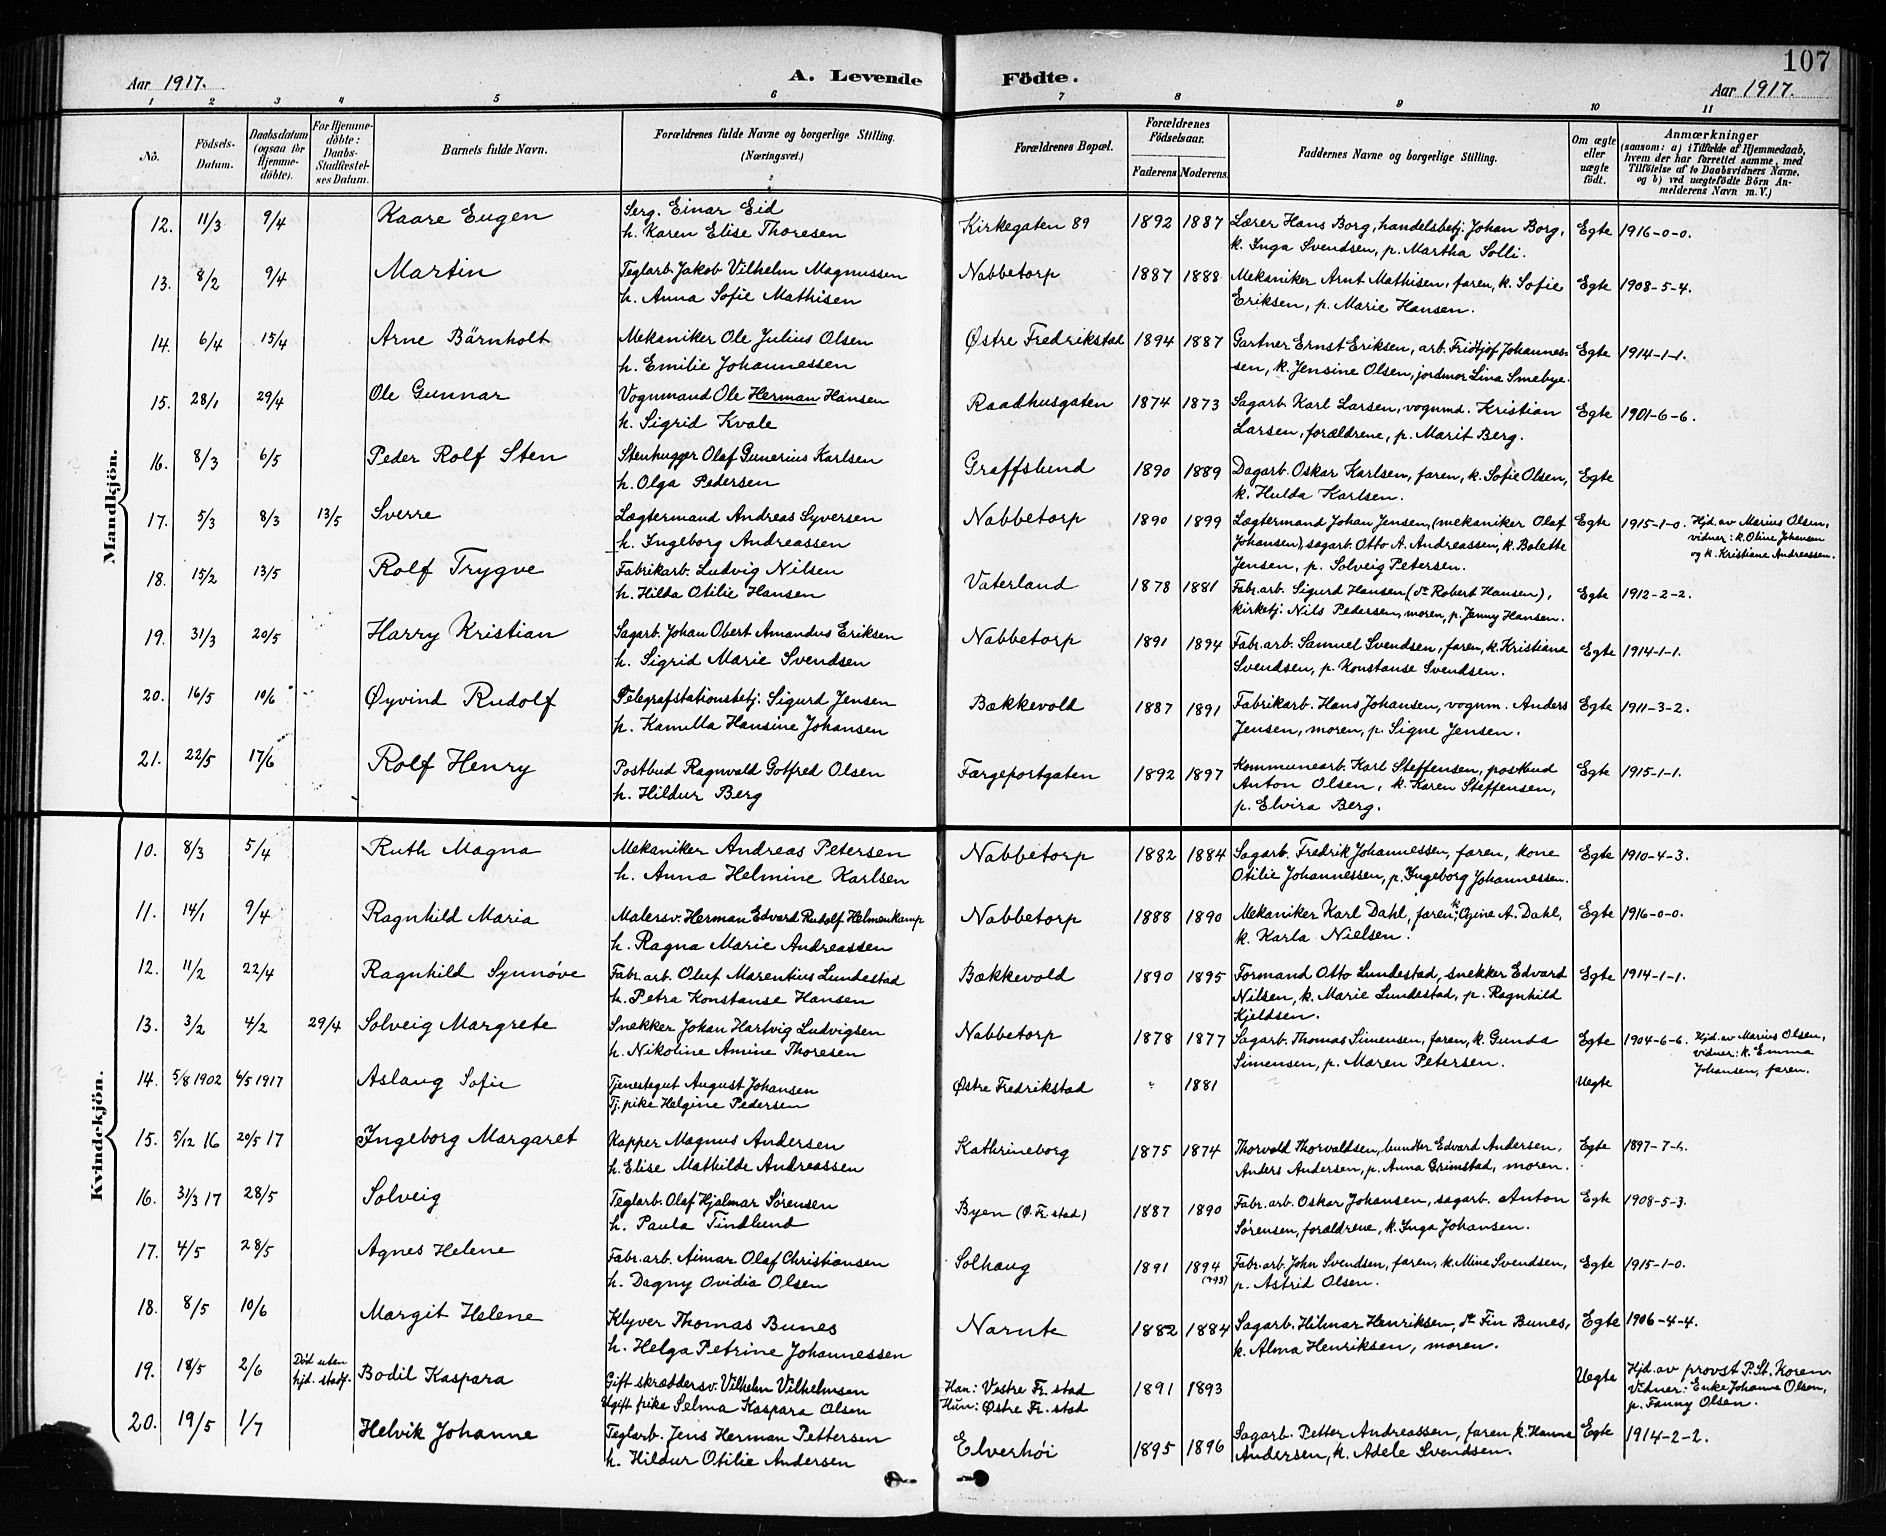 107
Aar 1917. A. Levende Födte. Aar 1917.
1 2 3 4 5 6 7 8 9 10 11
No. Födsels-Datum. Daabsdatum (ogsaa for Hjemme-döbte). For Hjemme-döbte: Daabs-Stadfæstel-ses Datum. Barnets fulde Navn. Forældrenes fulde Navne og borgerlige Stilling. (Næringsvei.) Forældrenes Bopæl. Forældrenes Födselsaar. Faderens. Moderens. Faddernes Navne og borgerlige Stilling. Om ægte eller uægte født. Anmærkninger (saasom: a) i Tilfælde af Hjemmedaab, hvem der har forrettet samme, med Tilføielse af to Daabsvidners Navne, og b) ved uægtefödte Börn An-melderens Navn m. V.)
Mandkjön.
12. 11/3 9/4 Kaare Eugen Serg. Einar Eid Kirkegaten 89 1892 1887 Lærer Hans Borg, handelsbetj. Johan Borg, Egte 1916-0-0.
h. Karen Elise Thoresen k. Inga Svendsen, p. Martha Solli.
13. 8/2 9/4 Martin Teglarb. Jakob Vilhelm Magnussen Nabbetorp 1887 1888 Mekaniker Arnt Mathisen, faren, k. Sofie Egte 1908-5-4.
h. Anna Sofie Mathisen Eriksen, p. Marie Hansen.
14. 6/4 15/4 Arne Bärnholt Mekaniker Ole Julius Olsen Østre Fredrikstad 1894 1887 Gartner Ernst Eriksen, arb. Fridtjof Johannes- Egte 1914-1-1.
h. Emilie Johannessen sen, k. Jensine Olsen, jordmor Lina Smebye.
15. 28/1 29/4 Ole Gunnar Vognmand Ole Herman Hansen Raadhusgaten 1874 1873 Sagarb. Karl Larsen, vognmd. Kristian Egte 1901-6-6.
h. Sigrid Kvale Larsen, forældrene, p. Marit Berg.
16. 8/3 6/5 Peder Rolf Sten Stenhugger Olaf Gunerius Karlsen Graffslund 1890 1889 Dagarb. Oskar Karlsen, faren, k. Sofie Olsen, Egte
h. Olga Pedersen k. Hulda Karlsen.
17. 5/3 8/3 13/5 Sverre Lægtermand Andreas Syversen Nabbetorp 1890 1899 Lægtermand Johan Jensen, (mekaniker Olaf Egte 1915-1-0. Hjd. av Marius Olsen,
h. Ingeborg Andreassen Johansen), sagarb. Otto A. Andreassen, k. Bolette vidner: k. Oline Johansen
Jensen, p. Solveig Petersen. og k. Kristiane Andreassen.
18. 15/2 13/5 Rolf Trygve Fabrikarb. Ludvig Nilsen Vaterland 1878 1881 Fabr. arb. Sigurd Hansen (st. Robert Hansen), Egte 1912-2-2.
h. Hilda Otilie Hansen kirketj. Nils Pedersen, moren, p. Jenny Hansen.
19. 31/3 20/5 Harry Kristian Sagarb. Johan Obert Amandus Eriksen Nabbetorp 1891 1894 Fabr. arb. Samuel Svendsen, faren, k. Kristiane Egte 1914-1-1.
h. Sigrid Marie Svendsen Svendsen, p. Konstanse Svendsen.
20. 16/5 10/6 Øyvind Rudolf Telegrafstationsbetj. Sigurd Jensen Bækkevold 1887 1891 Fabrikarb. Hans Johansen, vognm. Anders Egte 1911-3-2.
h. Kamilla Hansine Johansen Jensen, moren, p. Signe Jensen.
21. 22/5 17/6 Rolf Henry Postbud Ragnvald Gotfred Olsen Færgeportgaten 1892 1897 Kommunearb. Karl Steffensen, postbud Egte 1915-1-1.
h. Hildur Berg Anton Olsen, k. Karen Steffensen,
p. Elvira Berg.
Kvindekjön.
10. 8/3 5/4 Ruth Magna Mekaniker Andreas Petersen Nabbetorp 1882 1884 Sagarb. Fredrik Johannessen, faren, kone Egte 1910-4-3.
h. Anna Helmine Karlsen Otilie Johannessen, p. Ingeborg Johannessen.
11. 14/1 9/4 Ragnhild Maria Malersv. Herman Edvard Rudolf Helmenkamp Nabbetorp 1888 1890 Mekaniker Karl Dahl, faren, k. Gine A. Dahl, Egte 1916-0-0.
h. Ragna Marie Andreassen k. Karla Nielsen.
12. 11/2 22/4 Ragnhild Synnöve Fabr. arb. Oluf Marentius Lundestad Bækkevold 1890 1895 Formand Otto Lundestad, snekker Edvard Egte 1914-1-1.
h. Petra Konstanse Hansen Nilsen, k. Marie Lundestad, p. Ragnhild
Kjeldsen.
13. 3/2 4/2 29/4 Solveig Margrete Snekker Johan Hartvig Ludvigsen Nabbetorp 1878 1877 Sagarb. Thomas Simensen, faren, k. Gunda Egte 1904-6-6. Hjd. av Marius Olsen,
h. Nikoline Amine Thoresen Simensen, p. Maren Petersen. vidner: k. Emma
Johansen, faren.
14. 5/8 1902 6/5 1917 Aslaug Sofie Tjenestegut August Johansen Østre Fredrikstad 1881 Uegte
Tj. pike Helgine Pedersen
15. 5/12 16 20/5 17 Ingeborg Margaret Kapper Magnus Andersen Kathrineborg 1875 1874 Thorvald Thorvaldsen, bundter Edvard Andersen, Egte 1897-7-4.
h. Elise Mathilde Andreassen Anders Andersen, p. Anna Grimstad, moren.
16. 31/3 17 28/5 Solveig Teglarb. Olaf Hjalmar Sørensen Byen (Ø. Fr. stad) 1887 1890 Fabr. arb. Oskar Johansen, sagarb. Anton Egte 1908-5-3.
h. Paula Tindlund Sørensen, forældrene, k. Inga Johansen.
17. 4/5 28/5 Agnes Helene Fabr. arb. Aimar Olaf Christiansen Solhaug 1891 1894 Fabr. arb. John Svendsen, faren, k. Mina Svendsen, Egte 1915-1-0.
h. Dagny Ovidia Olsen p. Astrid Olsen.
18. 8/5 10/6 Margit Helene Klyver Thomas Bunes Narnte 1882 1884 Sagarb. Hilmar Henriksen, st. Fin Bunes, Egte 1906-4-4.
h. Helga Petrine Johannessen k. Alma Henriksen, moren.
19. 18/5 2/6 Död uten hjd. stadf. Bodil Kaspara Gift skræddersv. Vilhelm Vilhelmsen Han: Vestre Fr. stad 1891 1893 Uegte Hjd. av provst P. St. Koren.
Ugift pike Selma Kaspara Olsen Hun: Østre Fr. stad Vidner: Enke Johanne Olsen,
p. Fanny Olsen.
20. 19/5 1/7 Helvik Johanne Teglarb. Jens Herman Pettersen Elverhöi 1895 1896 Sagarb. Petter Andreassen, faren, k. Hanna Egte 1914-2-2.
h. Hildur Otilie Andersen Andersen, k. Adele Svendsen.